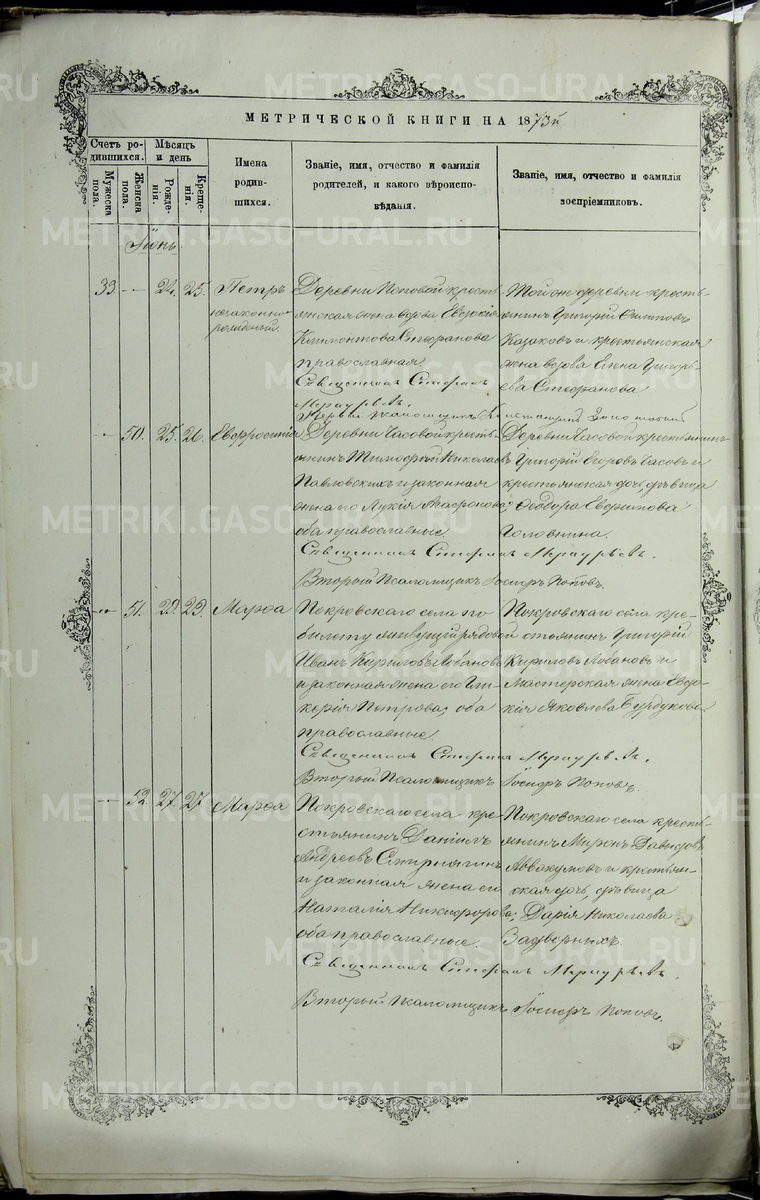 МЕТРИЧЕСКОЙ КНИГИ НА 1873й
Счетъ ро-
дившихся.
Мѣсяцъ
и день
Мужеска
пола.
Женска
пола.
Рожде-
нія.
Креще-
нія.
Имена
родив-
шихся.
Званіе, имя, отчество и фамилія
родителей, и какого вѣроиспо-
вѣданія.
Званіе, имя, отчество и фамилія
воспріемниковъ.
Іюнь.
33 — 24. 25. Петръ
незаконно-
рожденный.
Деревни Поповой кресть-
янская жена вдова Евдокія
Стефанова
православная.
Священникъ Стефанъ
Меркурьевъ.
Первый Псаломщикъ
Той же деревни кресть-
янинъ Григорій Филиповъ
Казаковъ и крестьянская
жена вдова Елена Григорь-
ева Стефанова
— 50. 25. 26. Евфросинія
Деревни Часовой кресть-
янинъ Тимофей Николаевъ
Павловскихъ и законная
жена его Лукія Агафонова;
оба православные.
Священникъ Стефанъ Меркурьевъ.
Второй Псаломщикъ Іосифъ Поповъ.
Деревни Часовой крестьянинъ
Григорій Егоровъ Часовъ и
крестьянская дочь, дѣвица
Феодора Евфимова
Головнина.
— 51. 29. 29. Марфа
Покровскаго села по
билету живущій рядовой
Иванъ Кириловъ Лобановъ
и законная жена его Гли-
керія Петрова; оба
православные.
Священникъ Стефанъ Меркурьевъ.
Второй Псаломщикъ Іосифъ Поповъ.
Покровскаго села кре-
стьянинъ Григорій
Кириловъ Лобановъ и
Мастерская жена Евдо-
кія Яковлева Бурдукова
— 52. 27. 27. Марфа
Покровскаго села кре-
стьянинъ Даніилъ
Андреевъ Смирнягинъ
и законная жена его
Наталія Никифорова;
оба православные.
Священникъ Стефанъ Меркурьевъ.
Второй Псаломщикъ Іосифъ Поповъ.
Покровскаго села кресть-
янинъ Миронъ Давидовъ
Аввакумовъ и крестьян-
ская дочь, дѣвица
Дарія Николаева
Задверныхъ.
METRIKI.GASO-URAL.RU